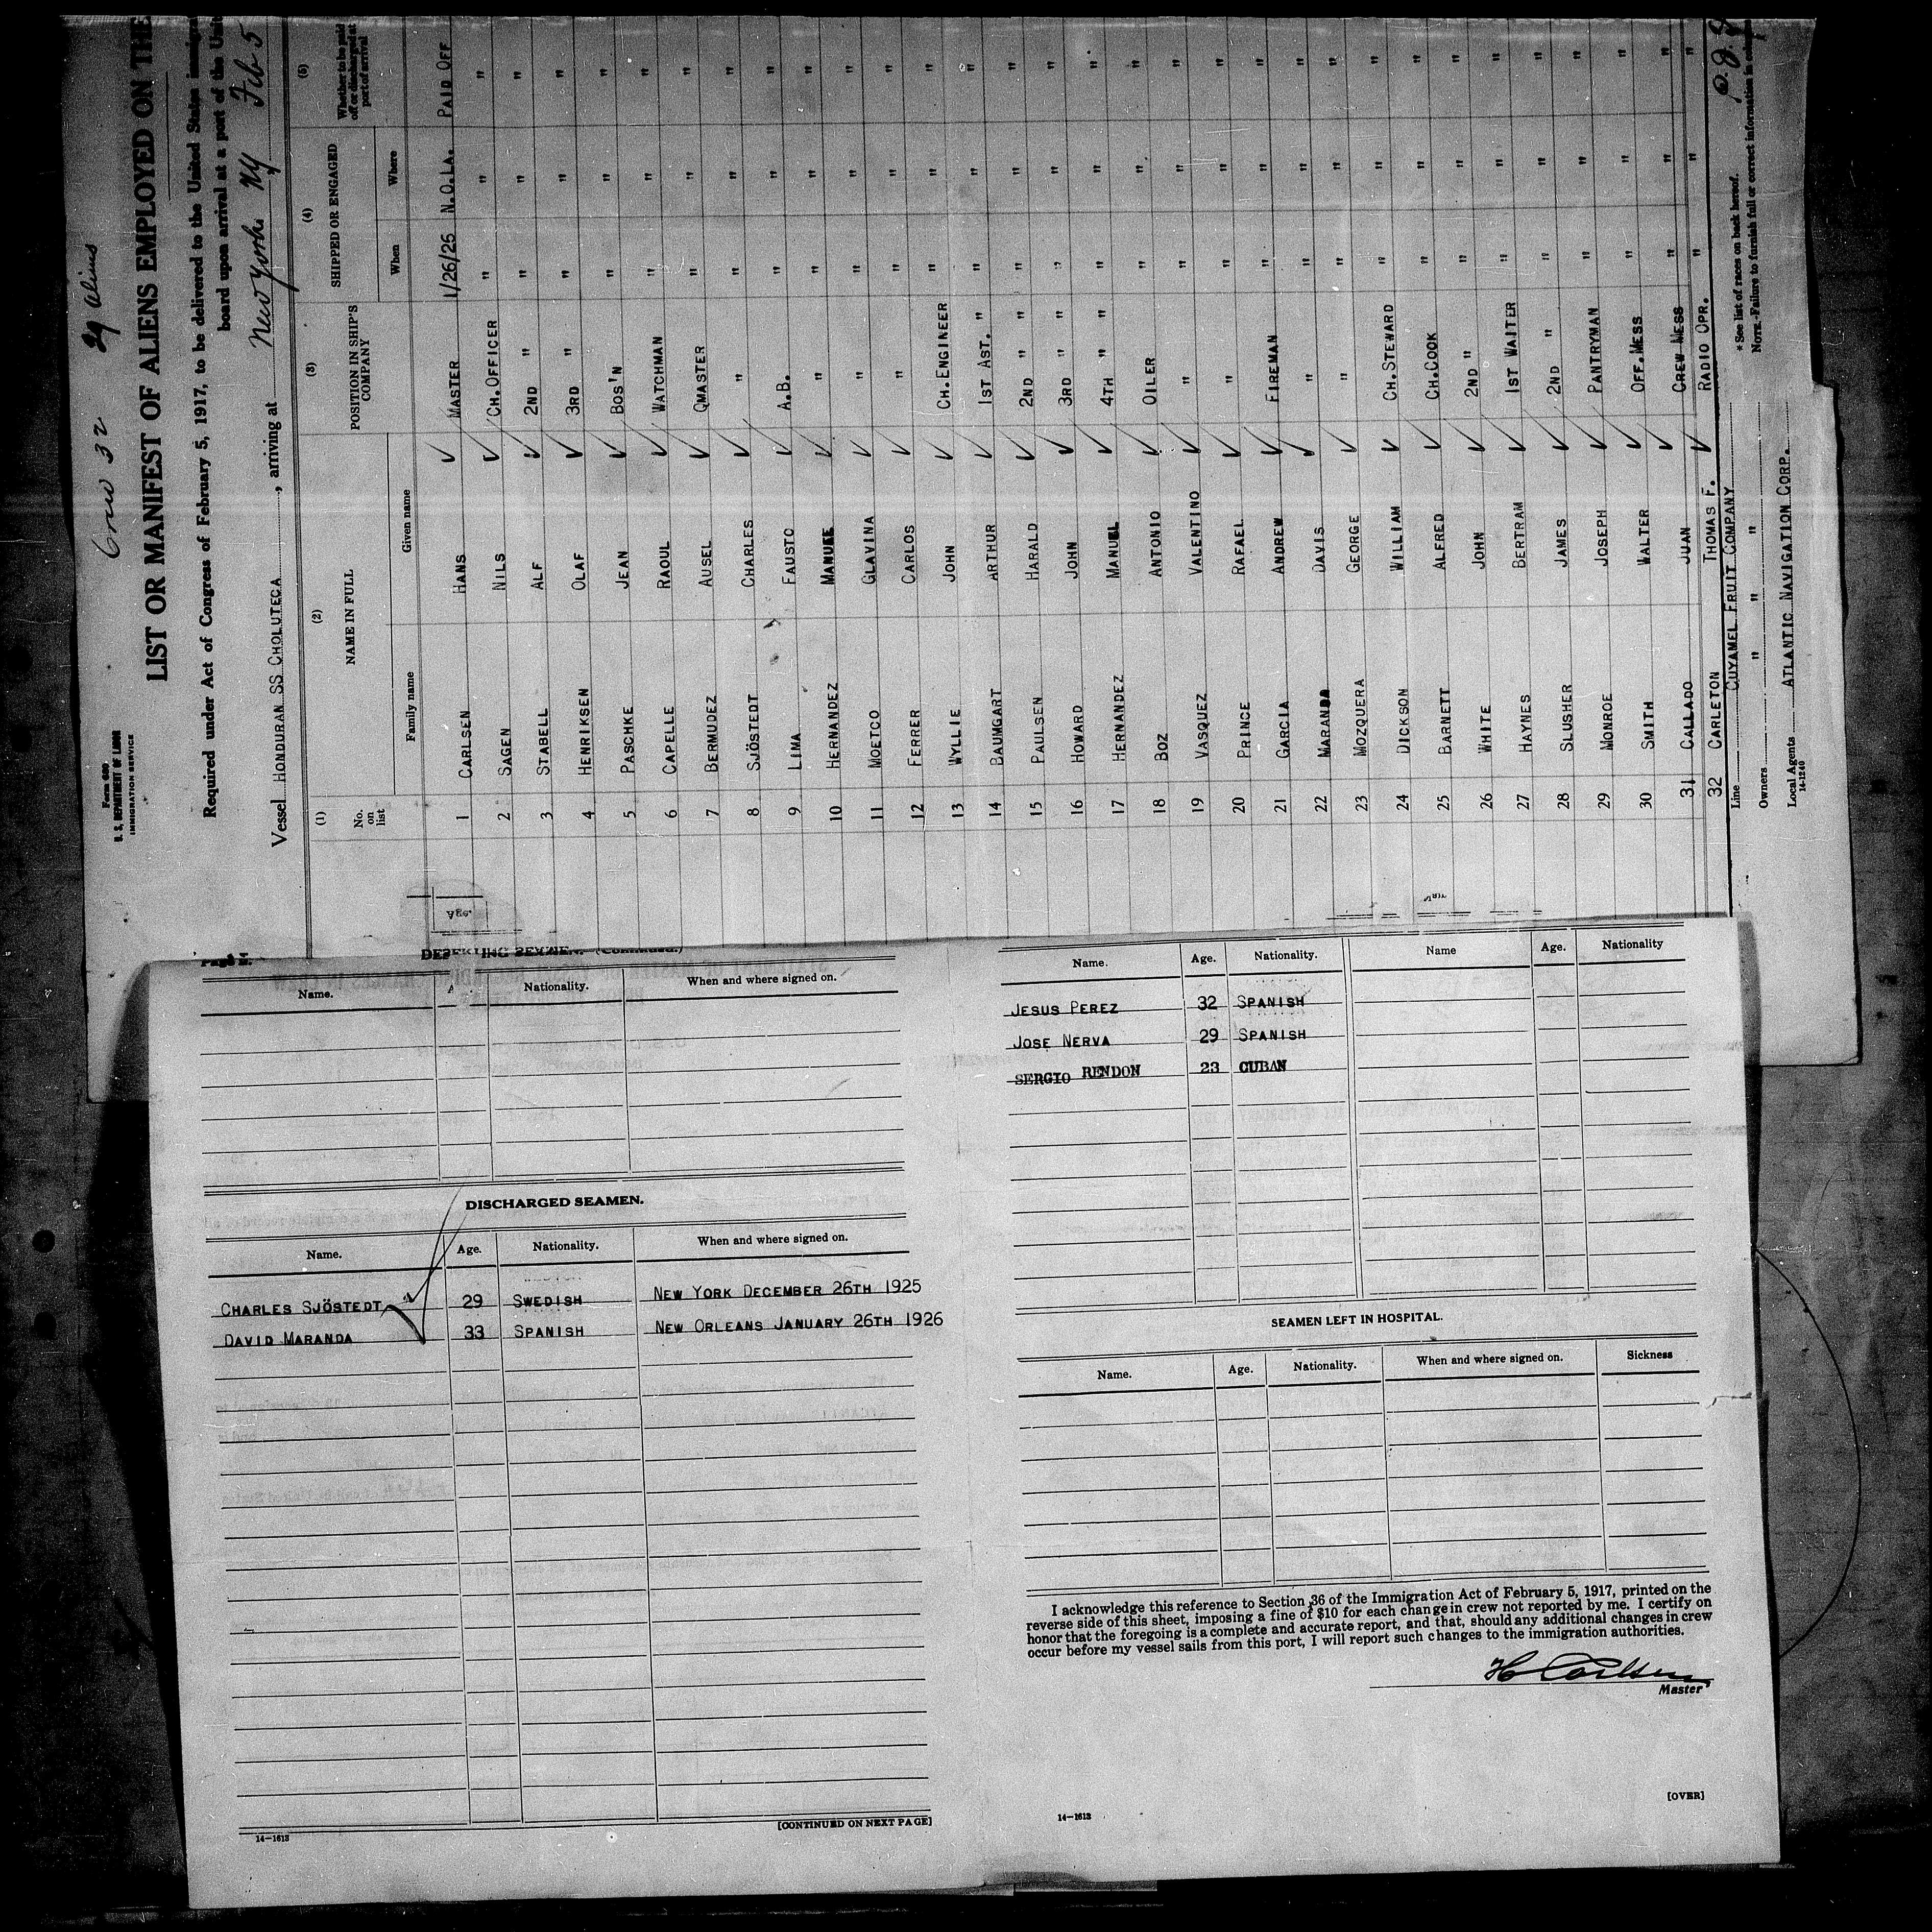 Crew 32 29 Aliens
Form 680
U. S. DEPARTMENT OF LABOR
IMMIGRATION SERVICE
LIST OR MANIFEST OF ALIENS EMPLOYED ON THE
Required under Act of Congress of February 5, 1917, to be delivered to the United States
board upon arrival at a port of the
Vessel HONDURAN SS CHOLUTECA, arriving at New York NY Feb 5
(1) (2) (3) (4) (5)
No. on list NAME IN FULL POSITION IN SHIP'S COMPANY SHIPPED OR ENGAGED Whether to be paid off or discharged at port of arrival
Family name Given name When Where
1 CARLSEN HANS MASTER 1/26/26 N.O.LA. PAID OFF
2 SAGEN NILS CH.OFFICER " " "
3 STABELL ALF 2ND " " " "
4 HENRIKSEN OLAF 3RD " " " "
5 PASCHKE JEAN BOS'N " " "
6 CAPELLE RAOUL WATCHMAN " " "
7 BERMUDEZ AUSEL QMASTER " " "
8 SJÖSTEDT CHARLES " " " "
9 LIMA FAUSTO A.B. " " "
10 HERNANDEZ MANUEL " " " "
11 MOETCO GLAVINA " " " "
12 FERRER CARLOS " " " "
13 WYLLIE JOHN CH.ENGINEER " " "
14 BAUMGART ARTHUR 1ST AST. " " " "
15 PAULSEN HARALD 2ND " " " " "
16 HOWARD JOHN 3RD " " " " "
17 HERNANDEZ MANUEL 4TH " " " " "
18 BOZ ANTONIO OILER " " "
19 VASQUEZ VALENTINO " " " "
20 PRINCE RAFAEL " " " "
21 GARCIA ANDREW FIREMAN " " "
22 MARANDA DAVIS " " " "
23 MOZQUERA GEORGE " " " "
24 DICKSON WILLIAM CH.STEWARD " " "
25 BARNETT ALFRED CH.COOK " " "
26 WHITE JOHN 2ND " " " "
27 HAYNES BERTRAM 1ST WAITER " " "
28 SLUSHER JAMES 2ND " " " "
29 MONROE JOSEPH PANTRYMAN " " "
30 SMITH WALTER OFF.MESS " " "
31 CALLADO JUAN CREW MESS " " "
32 CARLETON THOMAS F. RADIO OPR. " "
Line CUYAMEL FRUIT COMPANY
Owners " " "
Local Agents ATLANTIC NAVIGATION CORP.
14-1240
* See list of races on back hereof.
NOTE.-Failure to furnish full or correct information in
Age.
DESERTING SEAMEN. (Continued.)
Name. Nationality. When and where signed on.
DISCHARGED SEAMEN.
Name. Age. Nationality. When and where signed on.
CHARLES SJÖSTEDT 29 SWEDISH NEW YORK DECEMBER 26TH 1925
DAVID MARANDA 33 SPANISH NEW ORLEANS JANUARY 26TH 1926
14-1613
[CONTINUED ON NEXT PAGE]
Name. Age. Nationality. Name Age. Nationality
JESUS PEREZ 32 SPANISH
JOSE NERVA 29 SPANISH
SERGIO RENDON 23 CUBAN
SEAMEN LEFT IN HOSPITAL.
Name. Age. Nationality. When and where signed on. Sickness
I acknowledge this reference to Section 36 of the Immigration Act of February 5, 1917, printed on the
reverse side of this sheet, imposing a fine of $10 for each change in crew not reported by me. I certify on
honor that the foregoing is a complete and accurate report, and that, should any additional changes in crew
occur before my vessel sails from this port, I will report such changes to the immigration authorities.
H Carlsen
Master
[OVER]
14-1613